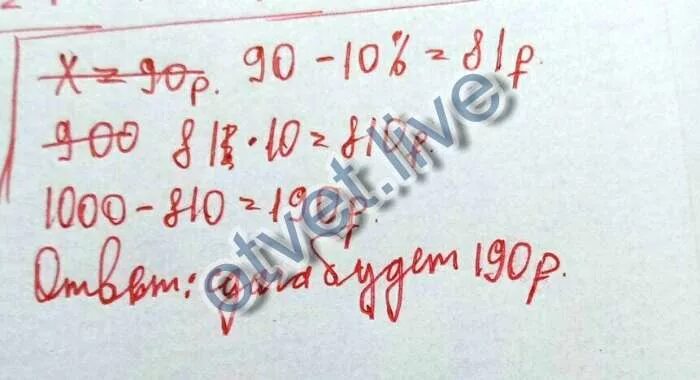 X = 90р. 90 - 10% = 81р.
900 81 · 10 = 810р.
1000 - 810 = 190р.
Ответ: будет 190р.
otvet.live